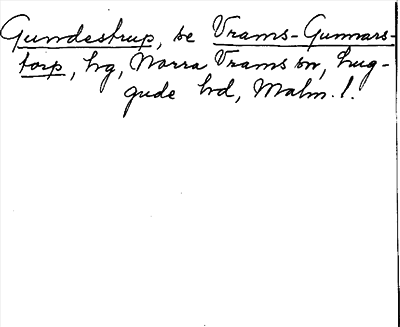 Gundestrup, se Vrams-Gunnars-
torp, hg, Norra Vrams sn, Lug-
gude hd, Malm. l.